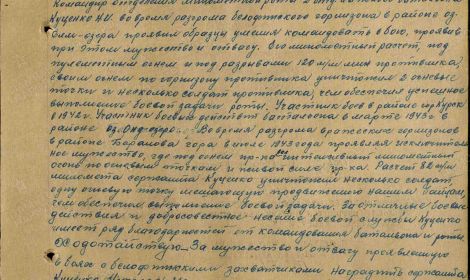 Командир отделения минометной роты 2 отд.
Куценко Н.И. во время разгрома белофинского гарнизона в районе оз.
озера проявил образцы умения командовать в бою, проявив
при этом мужество и отвагу. Его минометный расчет, под
пулеметным огнем и под разрывами 120 м/м мин противника,
своим огнем по гарнизону противника уничтожил 2 огневые
точки и несколько солдат противника, чем обеспечил успешное
выполнение боевой задачи роты. Участник боев в районе
в 1942 г. Участник боевых действий батальона в марте 1943 г. в
районе оз. Во время разгрома вражеских гарнизонов
в районе Баранова гора в июле 1943 года проявляя исключитель
ное мужество, где под огнем пр-ка вел интенсивный минометный
огонь по огневым точкам и живой силе пр-ка. Расчет 82 м/м
миномета сержанта Куценко уничтожил несколько солдат
одну огневую точку мешающую продвижению нашим бойцам,
чем обеспечил выполнение боевой задачи. За отличные боевые
действия и добросовестное несение боевой службы Куценко
имеет ряд благодарностей от командования батальона и роты.
Ходатайствую За мужество и отвагу проявленную
в боях с белофинскими захватчиками наградить сержанта
Куценко